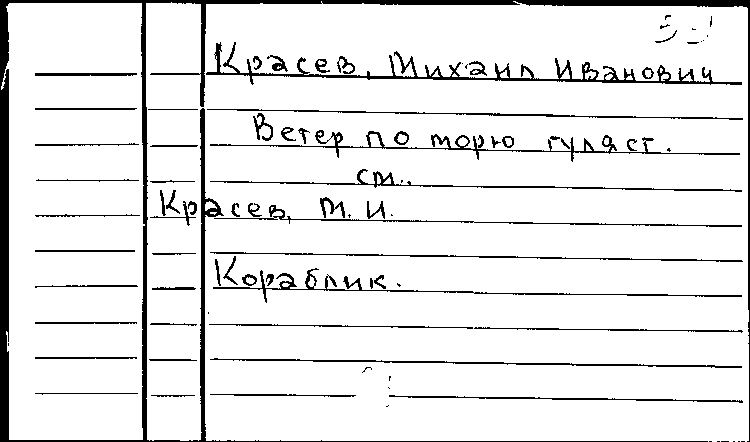 Красев, Михаил Иванович
Ветер по морю гуляет.
см..
Красев, М. И.
Кораблик.